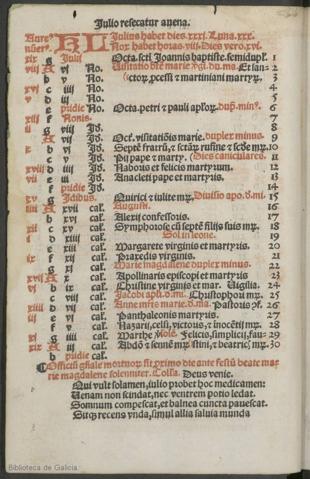 Julio resecatur auena.
Aure⁹ nũer⁹. KL Julius habet dies .xxxj. Luna .xxx.
Nox habet horas .viij. Dies vero .xvj.
xix g Julij Octa. scti Joannis baptiste. semidupl'. 1
viij A vj No. Uisitatio btẽ marie vgl. du. ma. Et san- 2
b v No. (ctorũ pcessi & martiniani martyrũ. 3
xvj c iiij No. 4
v d iij No. 5
e pridie No. Octa. petri & pauli aplorũ. dup. min⁹. 6
xiij f Nonis. 7
ij g viij Jd. 8
A vij Jd. Oct'. visitatiõis marie. duplex minus. 9
x b vj Jd. Septẽ fratrũ, & sctarũ rufine & scde mrũ. 10
c v Jd. Pij pape & marty. (Dies caniculares. 11
xviij d iiij Jd. Naboris et felicis martyrum. 12
vij e iij Jd. Anacleti pape et martyris. 13
f pridie Jd. 14
xv g Jdibus. Quirici & iulite mrũ. Diuisio apo. d. mi. 15
iiij A xvij cal. Augusti. 16
b xvj cal. Alexij confessoris. 17
xij c xv cal. Symphorose cũ septẽ filijs suis mrũ. 18
j d xiiij cal. Sol in leone. 19
e xiij cal. Margarete virginis et martyris. 20
ix f xij cal. Praxedis virginis. 21
g xj cal. Marie magdalene duplex minus. 22
xvij A x cal. Apollinaris episcopi et martyris 23
vj b ix cal. Christine virginis et mar. Uigilia. 24
c viij cal. Jacobi apli. d. mi. Christophori mr. 25
xiiij d vij cal. Anne mris marie. d. ma. Pastoris pb. 26
iij e vj cal. Panthaleonis martyris. 27
f v cal. Nazarij, celsi, victoris, & inocẽtij mrũ. 28
xj g iiij cal. Marthe Felicis, simplicij, fau- 29
xix A iij cal. Abdõ & sennẽ mrũ. (stini, & beatric' mrũ. 30
b pridie cal.
Officiũ gñale mortuorũ fit primo die ante festũ beate mar
rie magdalene solenniter. Colla. Deus venie.
Qui vult solamen, iulio probet hoc medicamen:
Uenam non scindat, nec ventrem potio ledat.
Somnum compescat, et balnea cuncta pauescat.
Sitque recens vnda, simul allia saluia munda
Biblioteca de Galicia